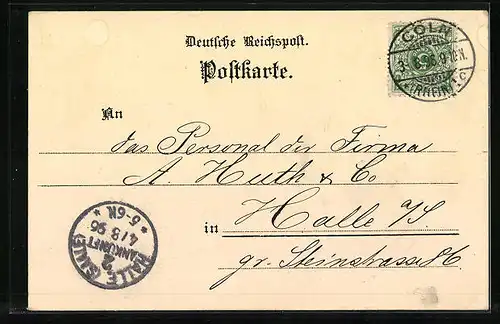 Deutsche Reichspost.
Postkarte.
CÖLN
(RHEIN) 1 c
An
das Personal der Firma
A. Huth & Co
in Halle a/S.
gr. Steinstrasse 86.
* 5-6N. *
4/3 96
ANKUNFT
2
HALLE (SAALE)